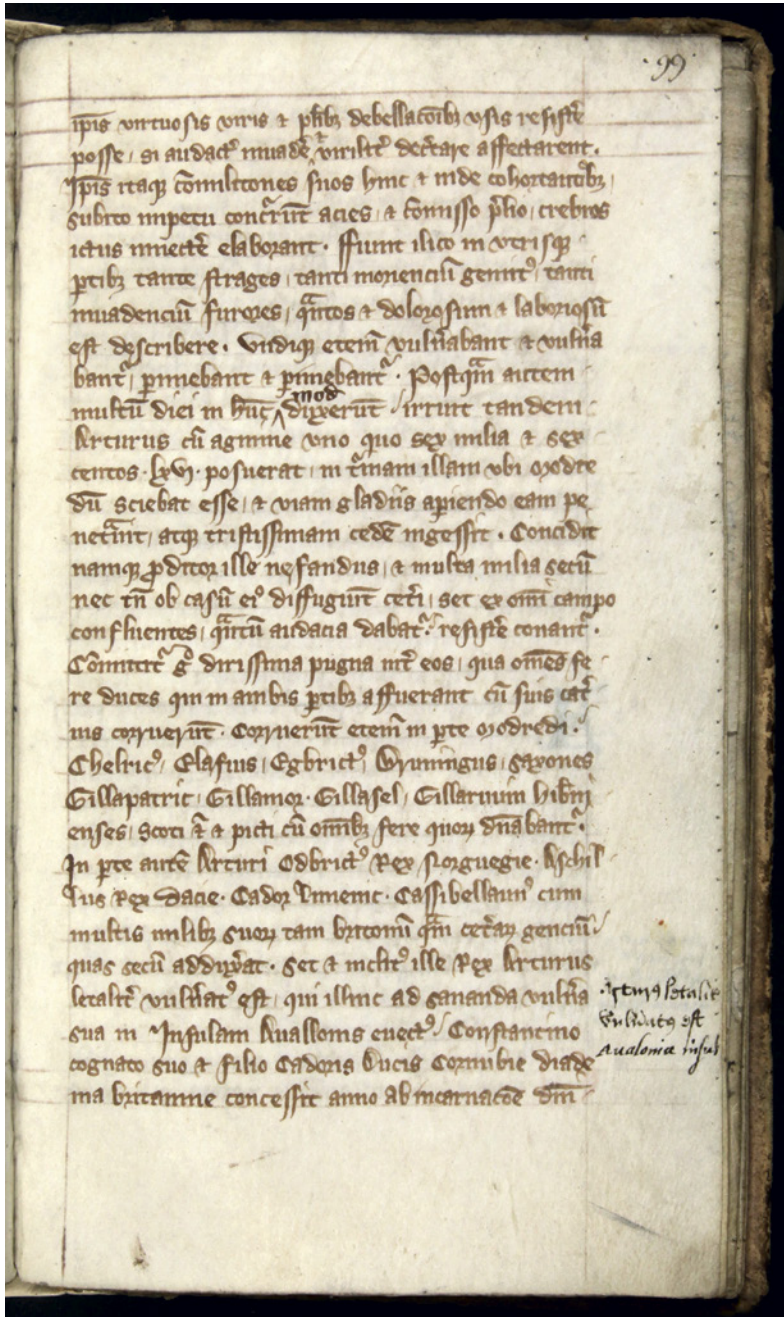 99
ip̄is virtuosis viris ⁊ p̄libꝫ debellacōibꝫ vsis resistē
posse, si audact᷑ inuadē ⁊ virilit᷑ decertare affectarent.
Ip̄is itaqꝫ cōmilitones suos hinc ⁊ inde cohortantibꝫ,
subito impetu concurrūt acies, ⁊ cōmisso p̄lio, crebros
ictus innectē elaborant. ffiunt ilico in vtrisqꝫ
ꝑtibꝫ tante strages, tanti morienciū gemitꝰ, tanti
inuadenciū furores, qntos ⁊ dolorosum ⁊ laboriosū
est describere. Vndiqꝫ etem̄ vuln̄abant ⁊ vuln̄a
bant᷑, ꝑimebant ⁊ ꝑimebant᷑. Postqm̄ autem
multū diei in hūc mod duxerūt, irruit tandem
Arturus cū agmine vno quo sex milia ⁊ sex
centos. lxvj. posuerat, in t᷑mam illam vbi modre
dū sciebat esse, ⁊ viam gladiis aꝑiendo eam pe
net᷑uit, atqꝫ tristissimam cedē ingessit. Concidit
namqꝫ ꝓditor ille nefandus, ⁊ multa milia secū
nec tn̄ ob casū eiꝰ diffugiūt cet᷑i, set ex om̄i campo
confluentes, qntū audacia dabat᷑. resistē conant᷑.
Cōmittit᷑ g̊ dirissima pugna int᷑ eos, qua om̄es fe
re duces qui in ambis ꝑtibꝫ affuerant cū suis cat᷑
uis corruerūt. Corruerūt etem̄ in ꝑte modredi.
Chelricꝰ, Elafius, Egbrictꝰ, Bruningus, saxones
Gillapatric, Gillamor. Gillasel, Gillaruum hib̄ni
enses, scoti ⁊ ⁊ picti cū om̄ibꝫ fere quoꝝ dn̄abant᷑.
In ꝑte autē Arturi Odbrictꝰ Rex Norguegie. Aschil
lus Rex dacie. Cador limenic. Cassibellaunꝰ cum
multis milibꝫ suoꝝ tam britonū qm̄ cet᷑aꝝ genciū,
quas secū adduxat. Set ⁊ inclitꝰ ille Rex Arturus
letalit᷑ vuln̄atꝰ est, qui illinc ad sananda vuln̄a
sua in Insulam Auallonis euectꝰ, Constantino
cognato suo ⁊ filio Cadoris Ducis Cornubie diade
ma britannie concessit anno ab incarnacōe dn̄i
Arturꝰ letalit
vulnatꝰ est
aualonia insul